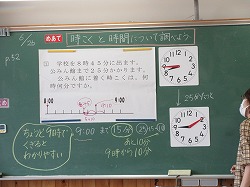 6/26
めあて 時こくと時間について調べよう
p.52
② 学校を8時45分に出ます。
公みん館まで25分かかります。
公みん館に着く時こくは、何
時何分ですか。
8:00
9:00
25分たつと
ちょうど9時で
くぎると
わかりやすい
9:00まで15分
あと10分
9時から10分